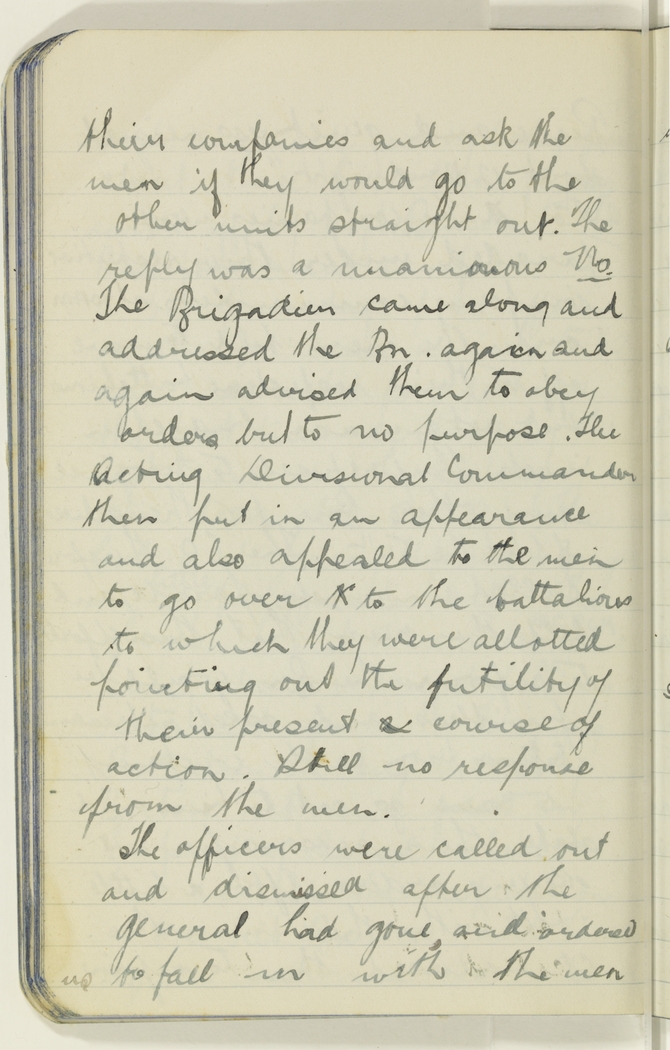 their companies and ask the
men if they would go to the
other units straight out. The
reply was a unanimous No.
The Brigadier came along and
addressed the Bn. again and
again advised them to obey
orders but to no purpose. The
Acting Divisional Commander
then put in an appearance
and also appealed to the men
to go over to the battalions
to which they were allotted
pointing out the futility of
their present course of
action. Still no response
from the men.
The officers were called out
and dismissed after the
General had gone and ordered
us to fall in with the men